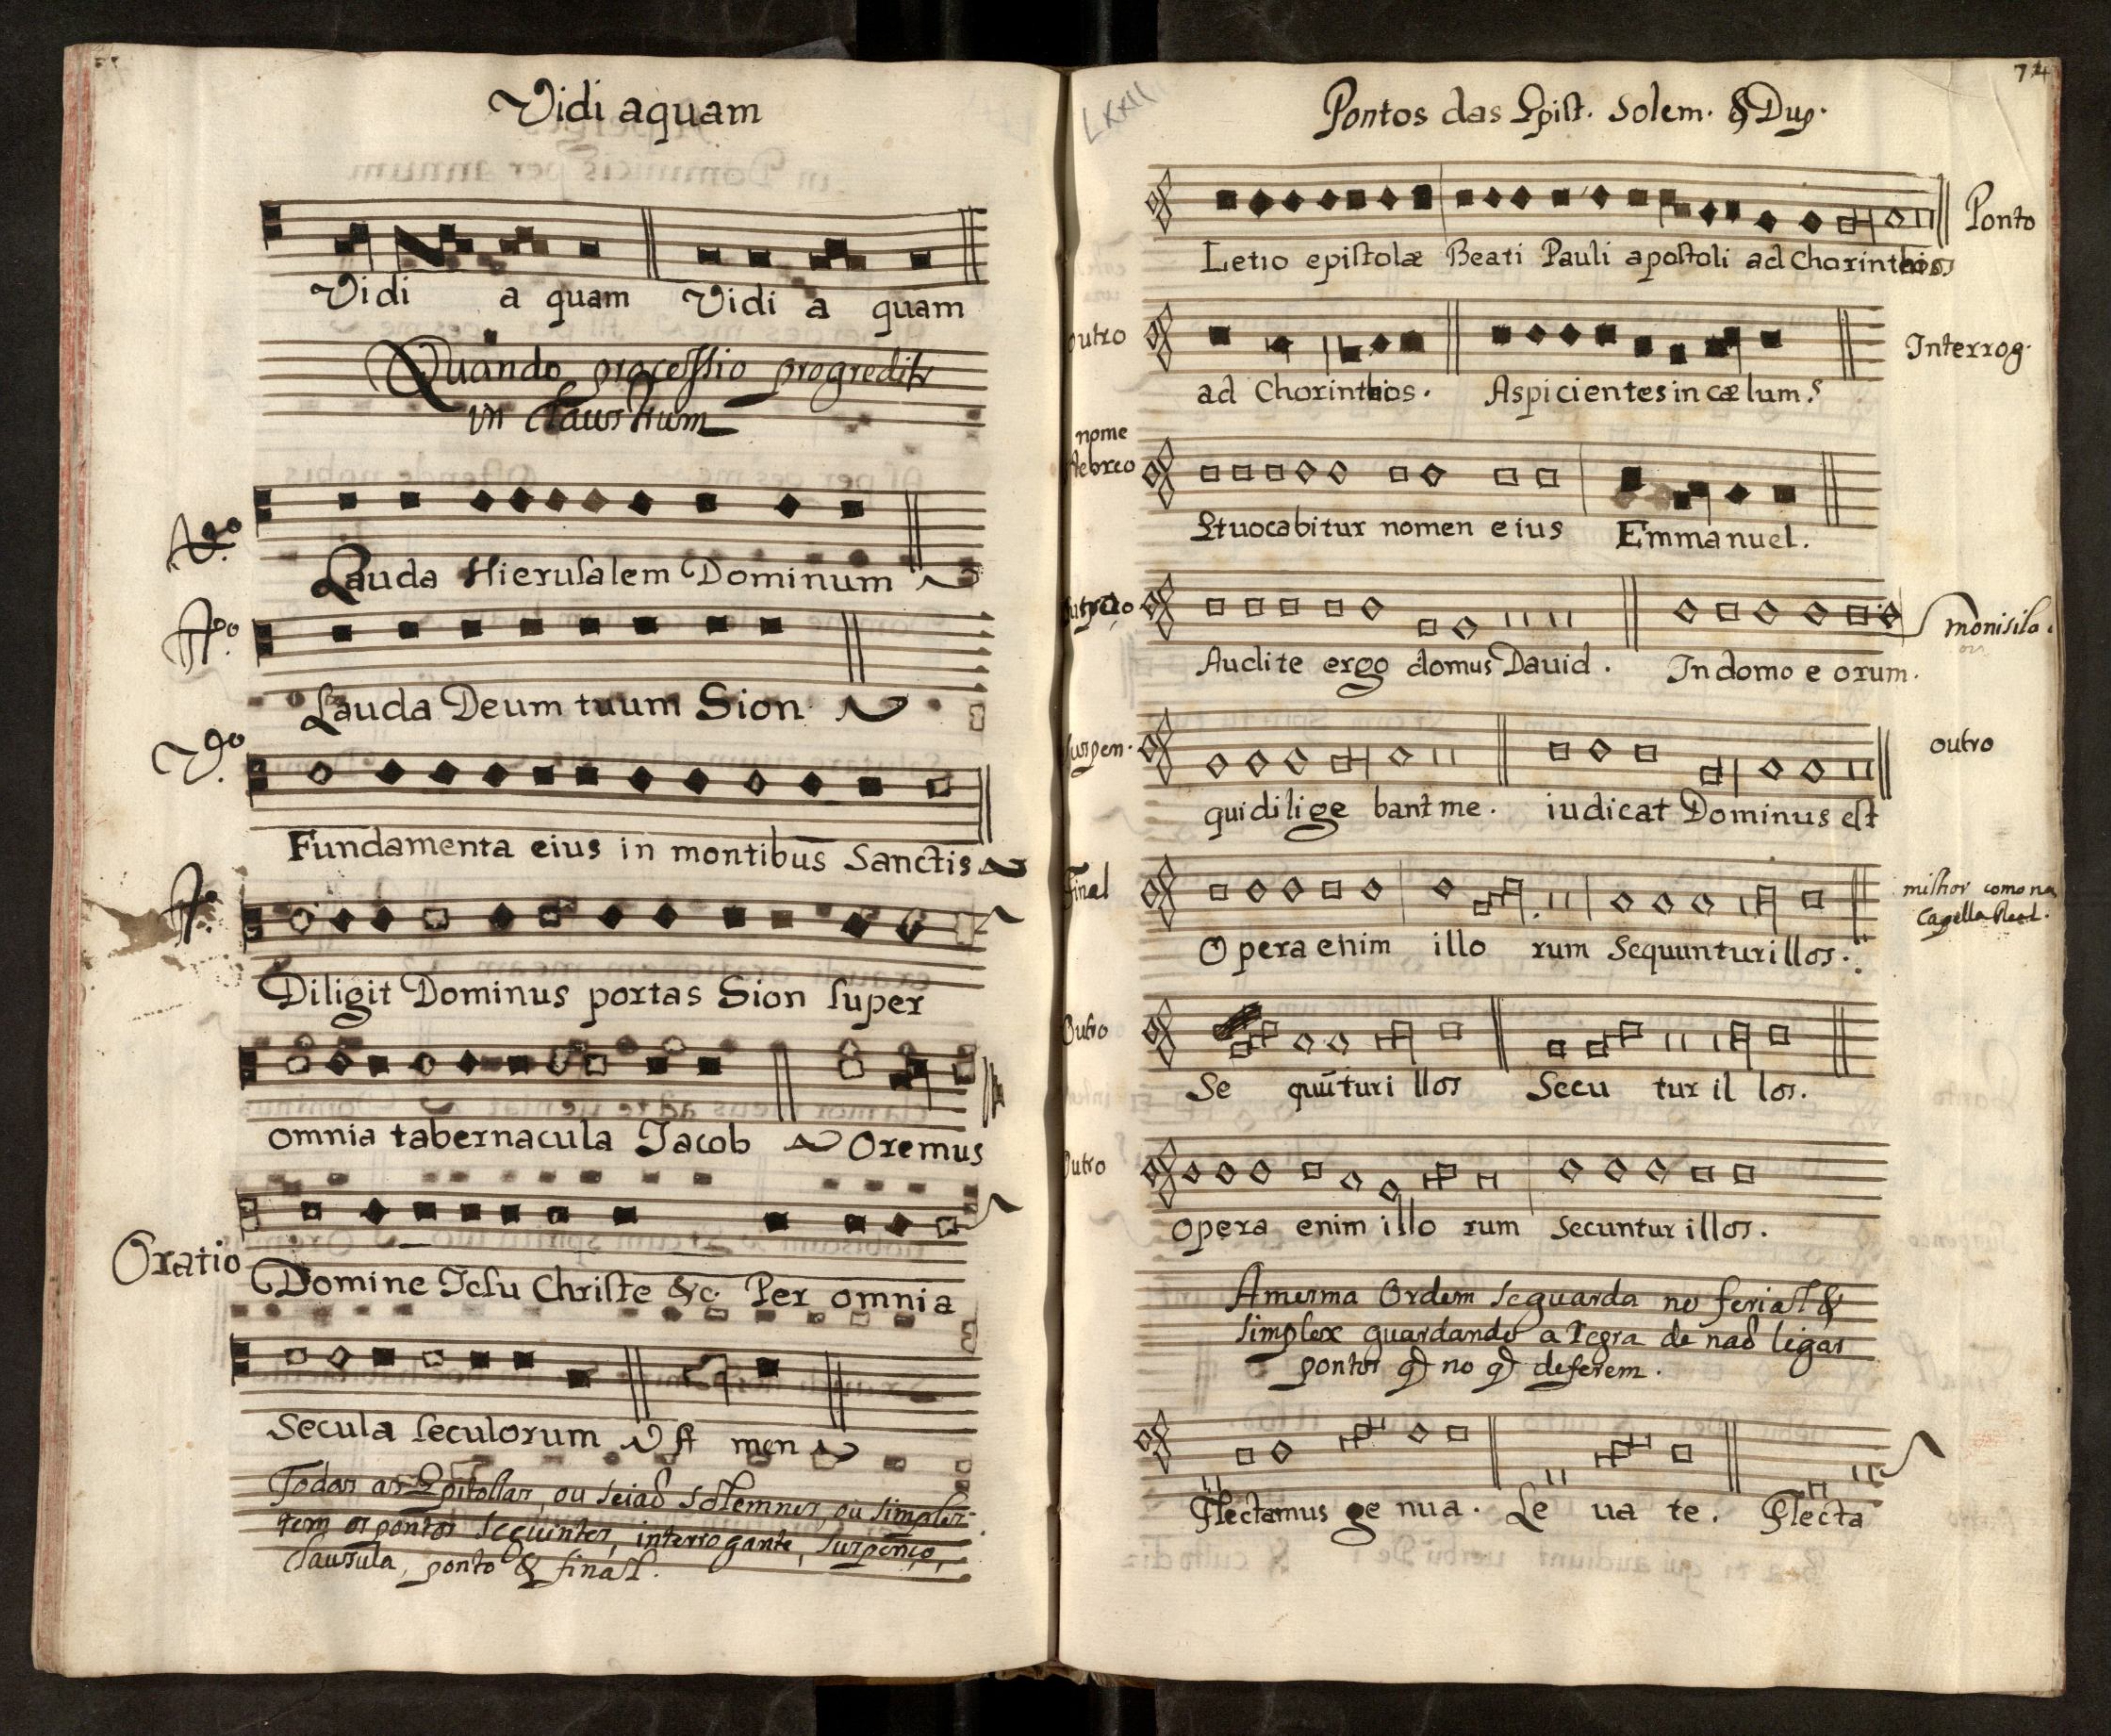 Vidi aquam
Vidi a quam Vidi a quam
Quando processio progreditr
in claustrum
Lauda Hierusalem Dominum
Lauda Deum tuum Sion
Fundamenta eius in montibus Sanctis
Diligit Dominus portas Sion super
omnia tabernacula Iacob Oremus
Oratio Domine Iesu Christe &c. Per omnia
Secula seculorum A men
Todas as Epistollas, ou seiaõ solemnes, ou simples
tem os pontos seguintes, interrogante, suspenço,
clausula, ponto & final.
LXXII
74
Pontos das Epist. Solem. & Dup.
Ponto
Letio epistolæ Beati Pauli apostoli ad Chorinthios
outro
ad Chorinthios. Aspicientes in cælum?
Interrog.
nome
Hebreo
Et uocabitur nomen eius Emmanuel.
Audite ergo domus Dauid. In domo e orum.
monisila.
Suspen.
qui dilige bant me. iudicat Dominus est
outro
Final
Opera enim illo rum Sequuntur illos.
milhor como na
Capella Real.
Outro
Se quũtur i llos Secu tur il los.
Outro
opera enim illo rum Secuntur illos.
A mesma Ordem se guarda no ferial &
simplex guardando a regra de naõ ligar
pontos q̃ no q̃ deferem.
Flectamus ge nua. Le ua te. Flecta